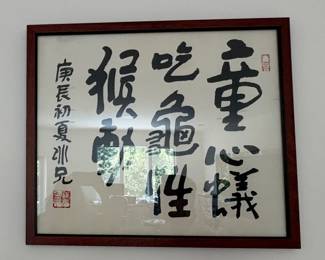 童心蟻
吃龜性
猴動
庚辰初夏冰兄